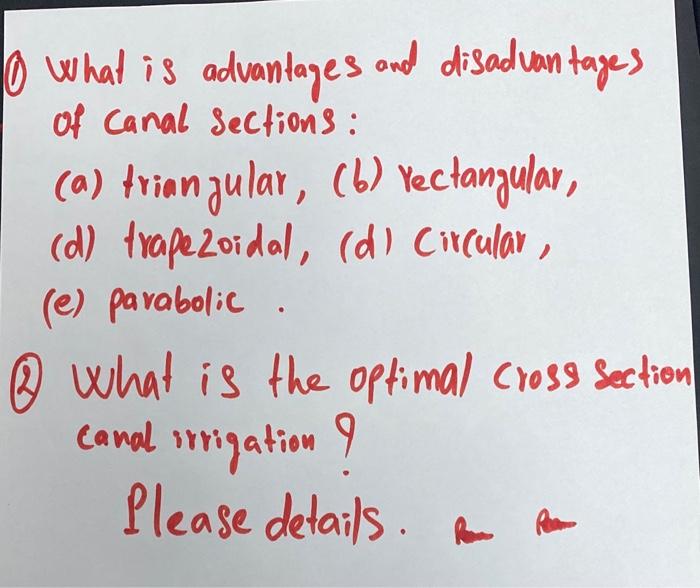 ① What is advantages and disadvantages
of Canal Sections:
(a) triangular, (b) rectangular,
(d) trapezoidal, (d) Circular,
(e) parabolic .
② What is the optimal Cross Section
Canal irrigation ?
Please details.